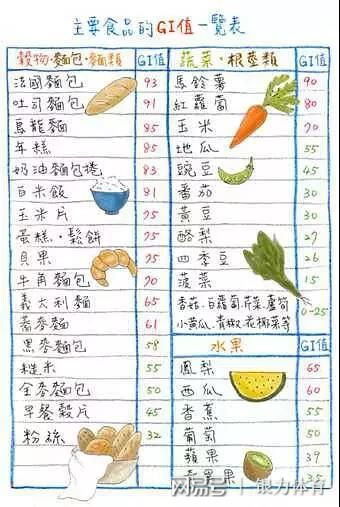 主要食品的GI值一覽表
穀物·麵包·麵類 GI值
法國麵包 93
吐司麵包 91
烏龍麵 85
年糕 85
奶油麵包捲 83
白米飯 81
玉米片 75
蛋糕·鬆餅 75
貝果 75
牛角麵包 70
義大利麵 65
蕎麥麵 61
黑麥麵包 58
糙米 55
全麥麵包 50
早餐穀片 45
粉絲 32
蔬菜·根莖類 GI值
馬鈴薯 90
紅蘿蔔 80
玉米 70
地瓜 55
豌豆 45
番茄 30
黃豆 30
酪梨 27
四季豆 26
菠菜 15
香菇、白蘿蔔、芹菜、蘆筍
小黃瓜、青椒、花椰菜等 0-25
水果 GI值
鳳梨 65
西瓜 60
香蕉 55
葡萄 50
蘋果
網易号 | 银力体育